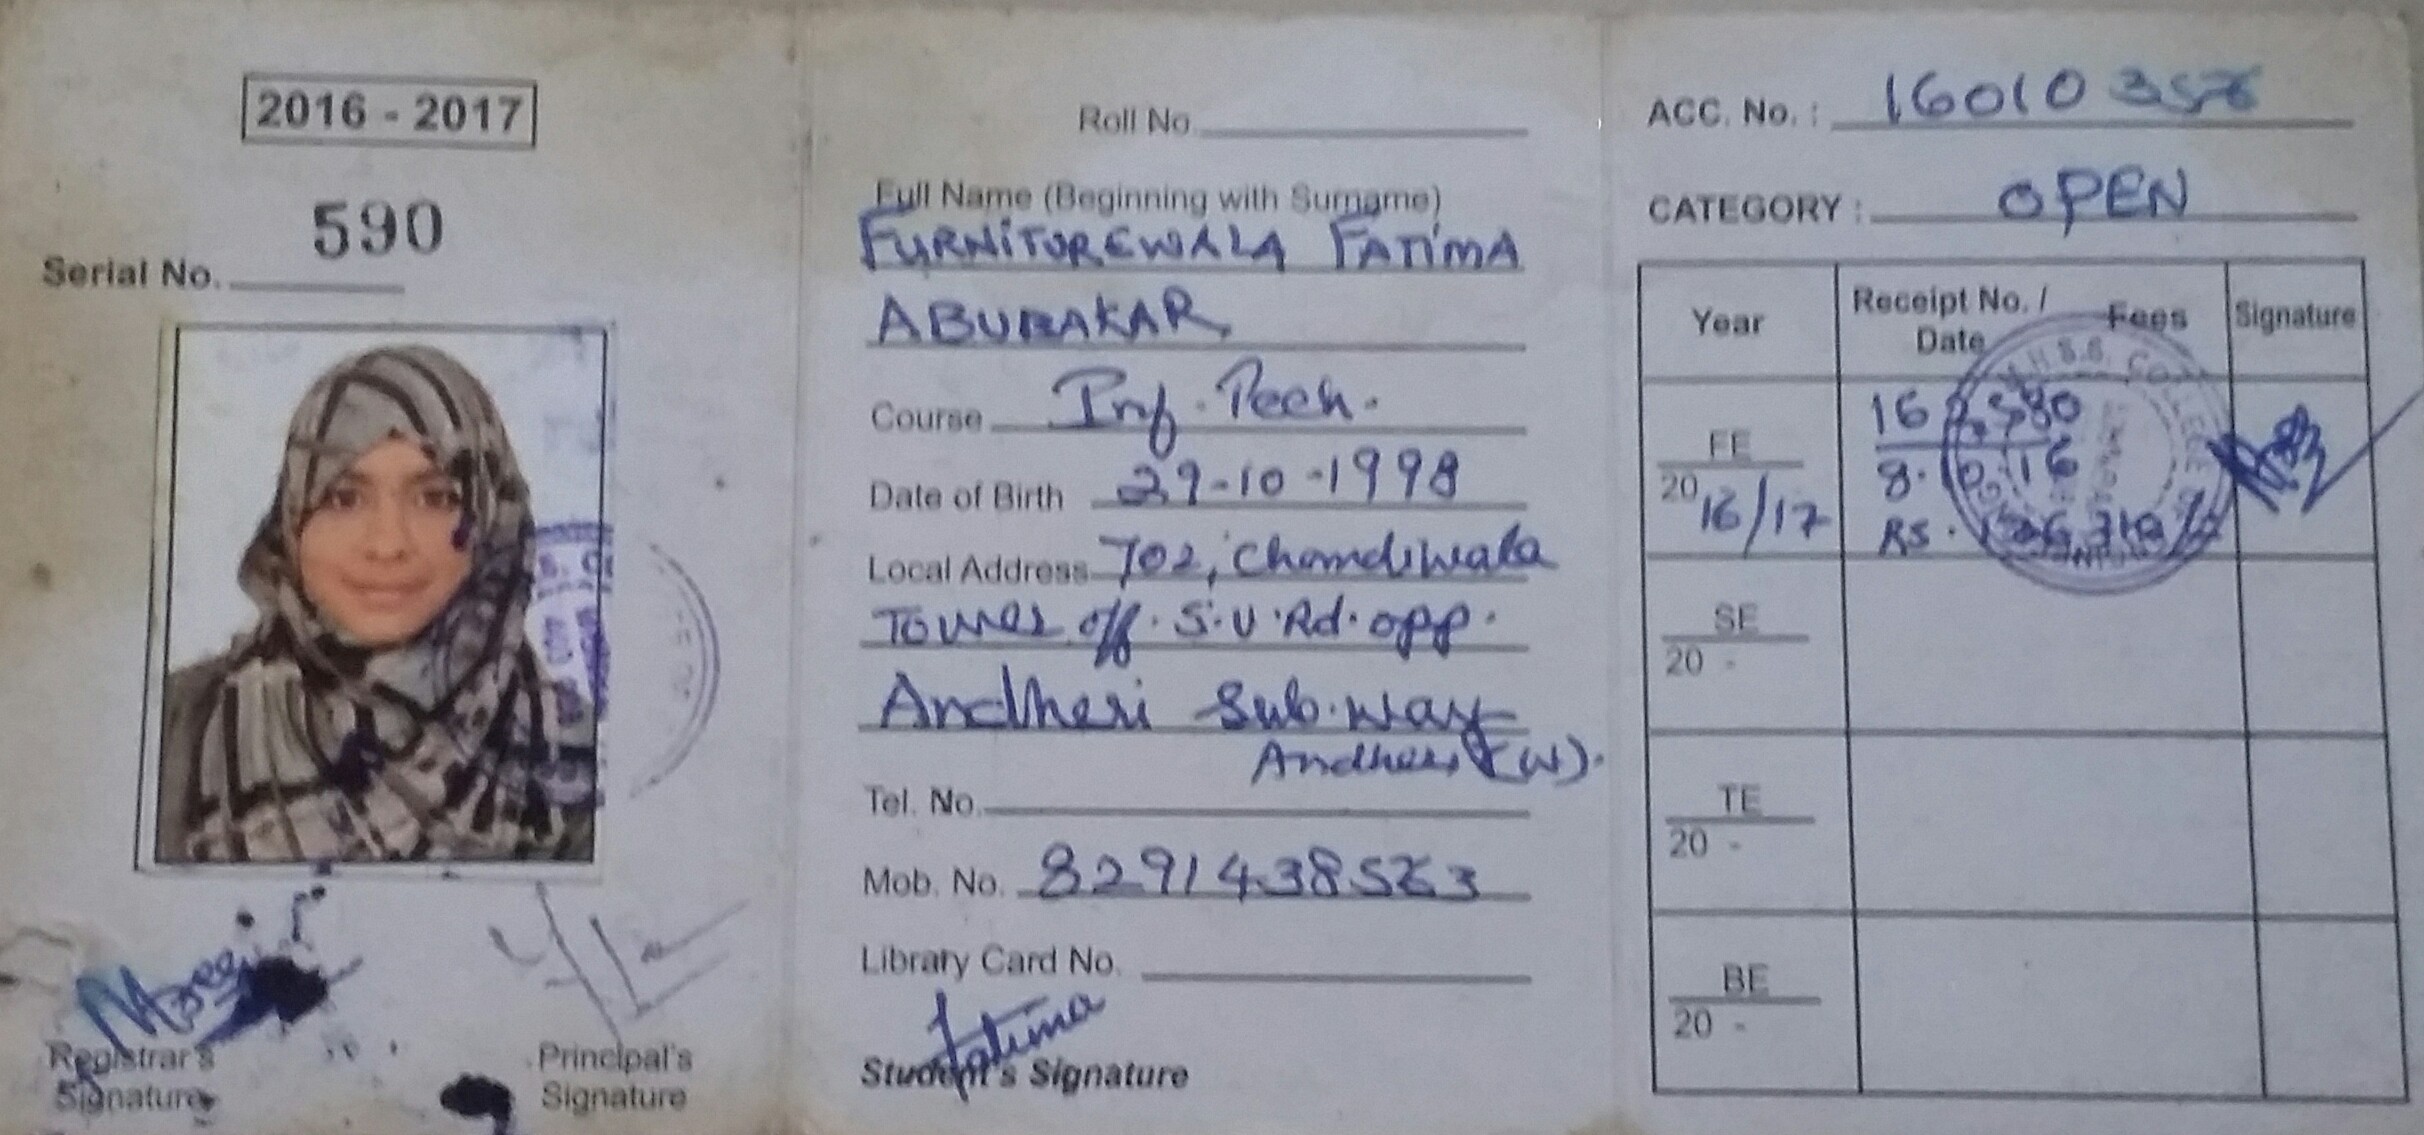 2016 - 2017
590
Serial No.
Registrar's
Signature
Principal's
Signature
Roll No.
Full Name (Beginning with Surname)
FURNITUREWALA FATIMA
ABUBAKAR
Course Inf. Tech.
Date of Birth 29-10-1998
Local Address 702, Chandiwala
Tower off. S.V. Rd. opp.
Andheri Sub.way
Andheri (W).
Tel. No.
Mob. No. 8291438
Library Card No.
Fatima
Student's Signature
ACC. No. : 16010
CATEGORY : OPEN
Year Receipt No. / Date Fees Signature
FE
2016/17
8.10.16
RS.
SE
20 -
TE
20 -
BE
20 -